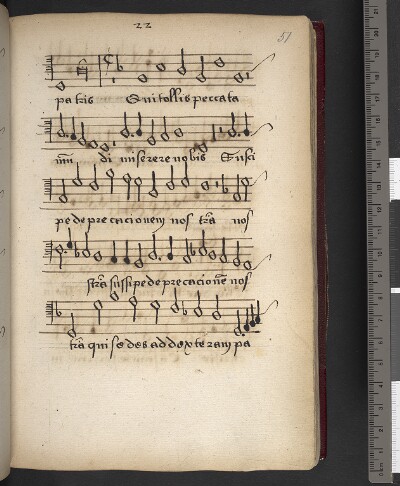 22
51
patris Qui tollis peccata
mũ di miserere nobis Susci
pe deprecacionem nos trã nos
strã sussipe deprecacionẽ nos
trã qui sedes ad dexteram pa